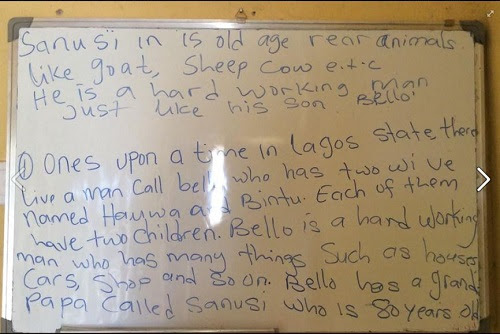 Sanusi in is old age rear animals.
like goat, Sheep Cow e.t.c
He is a hard working man
Just like his son Bello.
① Ones upon a time in Lagos state there
live a man call bello who has two wive
named Hauwa and Bintu. Each of them
have two children. Bello is a hard working
man who has many things Such as houses
Cars, Shop and So on. Bello has a grand
Papa Called Sanusi who is 80 years old